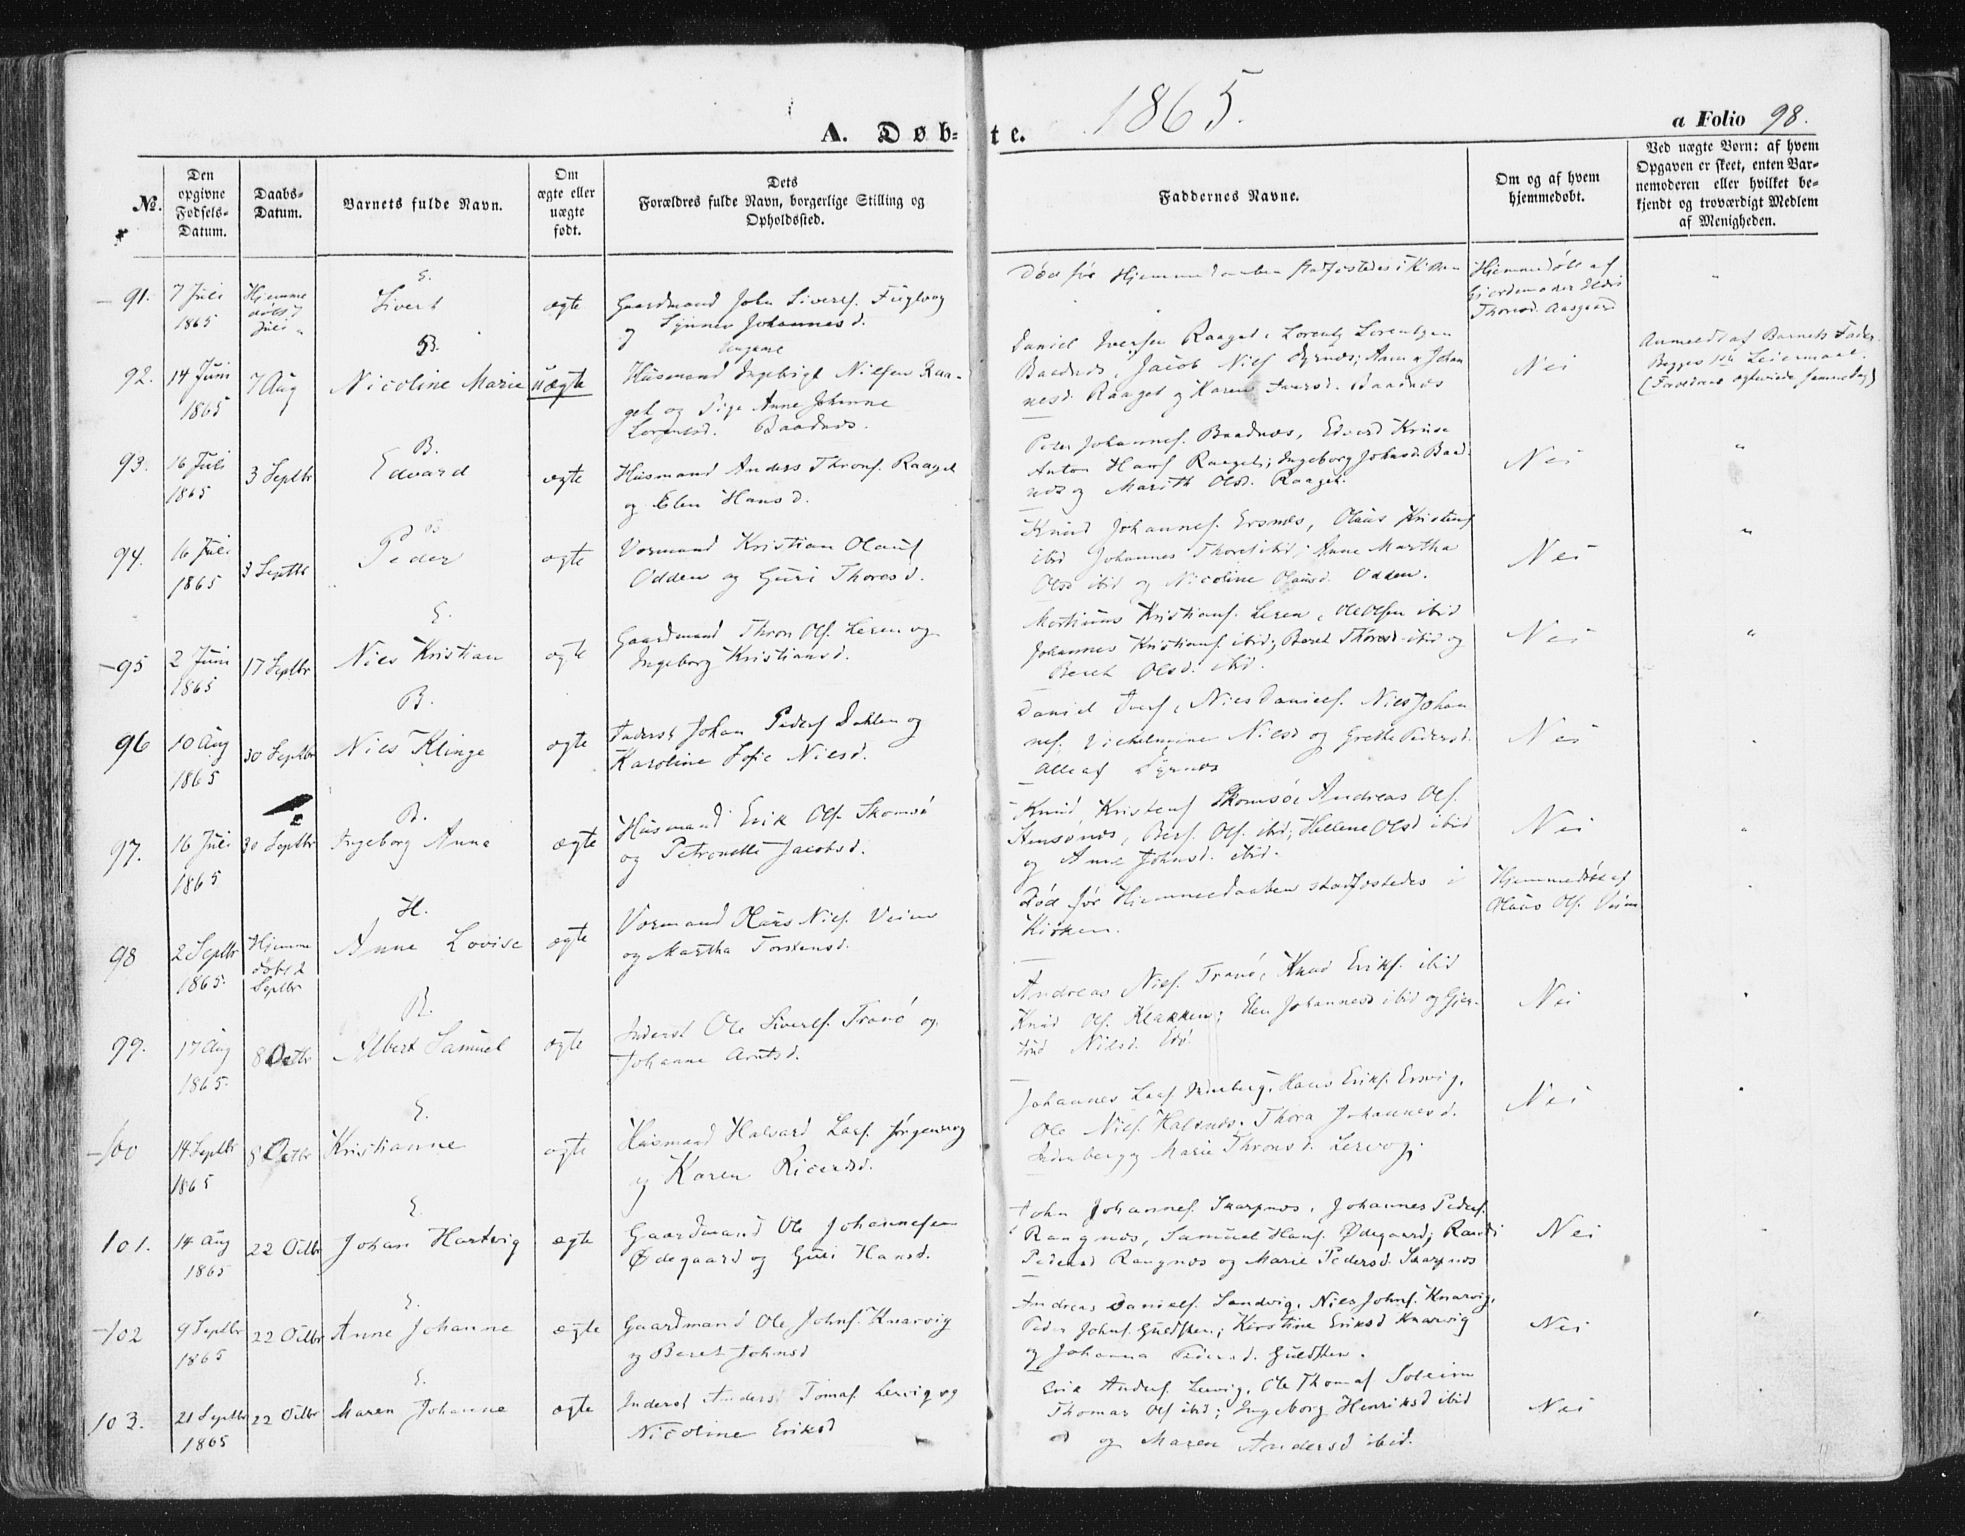 1865.
A. Døb- te.
a Folio 98.
№.
Den opgivne Fødsels-Datum.
Daabs-Datum.
Barnets fulde Navn.
Om ægte eller uægte født.
Dets Forældres fulde Navn, borgerlige Stilling og Opholdssted.
Faddernes Navne.
Om og af hvem hjemmedøbt.
Ved uægte Børn: af hvem Opgaven er skeet, enten Barnemoderen eller hvilket bekjendt og troværdigt Medlem af Menigheden.
91. 7 Juli 1865 Hjemme døbt 7 Juli E. Sivert ægte
Gaardmand John Siverts. Fuglvog og Synnev Johannesd.
Død før Hjemmedaaben stadfæstedes i Kirken
Hjemmedøbt af Gjordemoder Thoresd. Aasgaard
92. 14 Juni 1865 7 Aug B. Nicoline Marie uægte
Ungkarl Husmand Ingebrigt Nilsen Raaget og Pige Anne Johanne Lorentsd. Baadnæs.
Daniel Iversen Raaget, Lorentz Lorentzen Baadnæs, Jacob Niels. Dyrnæs; Anne Johannesd. Raaget og Karen Iversd. Baadnæs
Nei
Anmeldt af Barnets Fader. Begges 1ste Leiermaal. (Forældrene ægteviede samme Dag)
93. 16 Juli 1865 3 Septbr B. Edvard ægte
Husmand Anders Throns. Raaget og Elen Hansd.
Peter Johannes. Baadnæs, Edvard Kruse Anton Hans. Raaget; Ingeborg Johnsd. Baadnæs og Marith Olsd. Raaget.
Nei
94. 16 Juli 1865 3 Septbr B Peder ægte
Vormand Kristian Olaus. Odden og Guri Thoresd.
Knud Johannes. Ersnes, Olaus Kristens. ibid Johannes Thores. ibid; Anne Martha Olsd ibid og Nicoline Olausd. Odden.
Nei
95 2 Juni 1865 17 Septbr E. Niels Kristian ægte
Gaardmand Thron Ols. Leren og Ingeborg Kristiansd.
Martinus Kristians. Leren, Ole Olsen ibid Johannes Kristians. ibid; Beret Thoresd. ibid og Beret Olsd. ibid.
Nei
96 10 Aug 1865 30 Septbr B. Niels Klinge ægte
Inderst Johan Peders. Dahlen og Karoline Sofie Nielsd.
Daniel Ivers., Niels Daniels. Niels Johannes. Vilhelmine Nielsd og Grethe Pedersd. Alle af Dyrnæs
Nei
97. 16 Juli 1865 30 Septbr B. Ingeborg Anna ægte
Husmand Erik Ols. Skomsø og Petronelle Jacobsd.
Knud Kristens. Skomsø, Andreas Ols. Ols. ibid; Hellene Olsd ibid og Anne Johnsd. ibid.
Nei
98 2 Septbr 1865. Hjemme døbt 2 Septbr H. Anne Lovise ægte
Vormand Niels. Veien og Martha Torstensd.
Død før Hjemmedaaben stadfæstedes i Kirken.
Hjemmedøbt af Olaus Ols. Veien
99. 17 Aug 1865. 8 Octbr B. Albert Samuel ægte
Inderst Ole Siverts. Tranø og Johanne Arntsd.
Andreas Niels. Tranø, Knud Eriks. ibid Knud Ols. Klakken; Elen Johannesd ibid og Gjertrud Nielsd. Edø.
Nei
100 14 Septbr 1865 8 Octbr E. Kristianne ægte
Husmand Halvard Lars. Jørgenvog og Karen Ricersd.
Johannes Lars. Inderberg, Hans Eriks. Ersvig, Ole Niels. Halsnæs, Thora Johannesd. Inderberg og Marie Thronsd. Lervog.
Nei
101. 14 Aug 1865 22 Octbr E. Johan Hartvig ægte
Gaardmand Ole Johannesen Ødegaard og Guri Hansd.
John Johannes. Skarpnæs, Johannes Peders. Rangnæs, Samuel Hans. Ødegaard; Randi Pedersd Rangnæs og Marie Pedersd. Skarpnæs
Nei
102 9 Septbr 1865 22 Octbr E. Anne Johanne ægte
Gaardmand Ole Johns. Knarvig og Beret Johnsd
Andreas Daniels. Sandvig, Niels Johns. Knarvig, Peder Johns. Guldsten; Kirstine Eriksd Knarvig og Johanna Pedersd. Guldsten.
Nei
103. 21 Septbr 1865 22 Octbr E. Maren Johanne ægte
Inderst Anders Tomas. Lervig og Nicoline Eriksd
Erik Anders. Lervig, Ole Thomas. Soleim Thomas Ols. ibid; Ingeborg Henriksd ibid og Maren Andersd ibid.
Nei